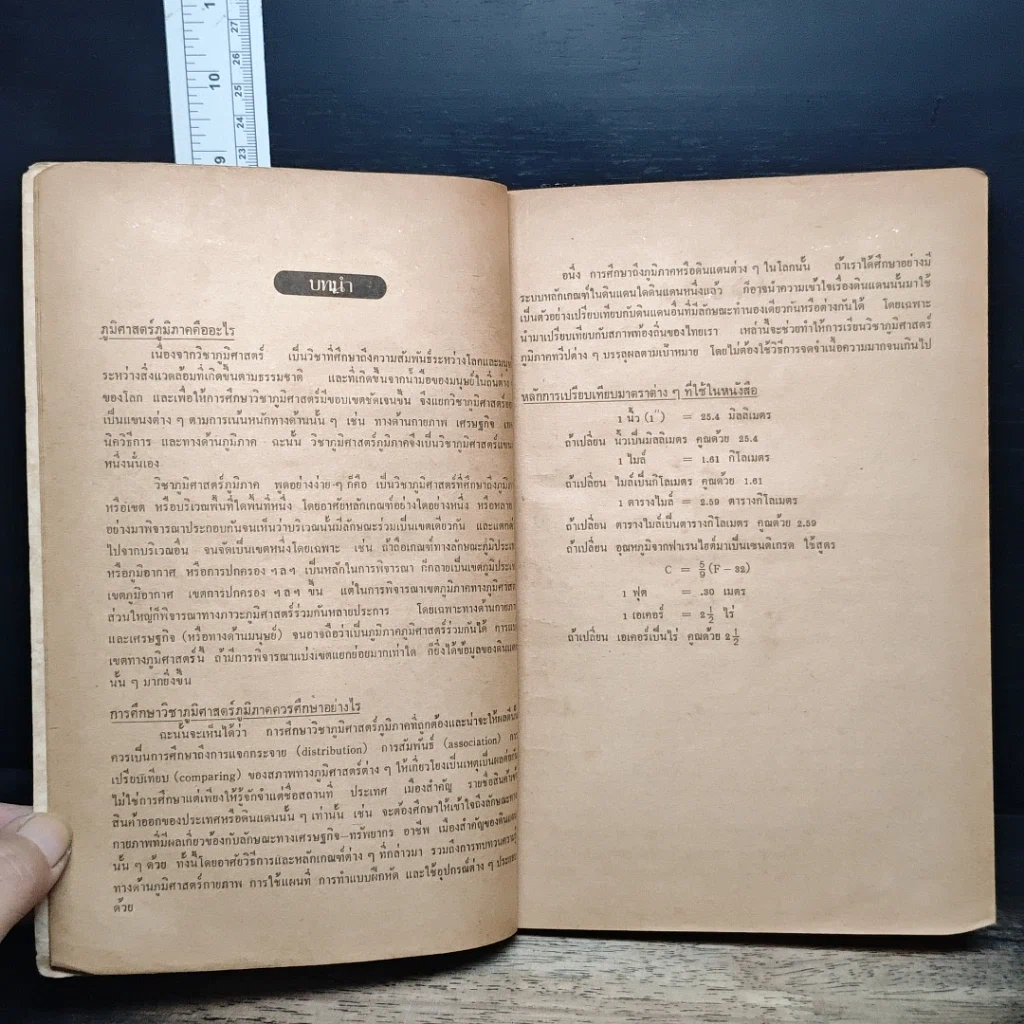 1
27
26
10
25
24
9
23
บทนำ
ภูมิศาสตร์ภูมิภาคคืออะไร
เนื่องจากวิชาภูมิศาสตร์ เป็นวิชาที่ศึกษาถึงความสัมพันธ์ระหว่างโลกและมนุษ
ระหว่างสิ่งแวดล้อมที่เกิดขึ้นตามธรรมชาติ และที่เกิดขึ้นจากน้ำมือของมนุษย์ในถิ่นต่าง
ของโลก และเพื่อให้การศึกษาวิชาภูมิศาสตร์มีขอบเขตชัดเจนขึ้น จึงแยกวิชาภูมิศาสตร์
เป็นแขนงต่าง ๆ ตามการเน้นหนักทางด้านนั้น ๆ เช่น ทางด้านกายภาพ เศรษฐกิจ
นิควิธีการ และทางด้านภูมิภาค ฉะนั้น วิชาภูมิศาสตร์ภูมิภาคจึงเป็นวิชาภูมิศาสตร์
หนึ่งนั่นเอง
วิชาภูมิศาสตร์ภูมิภาค พูดอย่างง่าย ๆ ก็คือ เป็นวิชาภูมิศาสตร์ที่ศึกษาถึงภูมิภ
หรือเขต หรือบริเวณพื้นที่ใดพื้นที่หนึ่ง โดยอาศัยหลักเกณฑ์อย่างใดอย่างหนึ่ง หรือหลาย
อย่างมาพิจารณาประกอบกันจนเห็นว่าบริเวณนั้นมีลักษณะร่วมเป็นเขตเดียวกัน และแตกต่
ไปจากบริเวณอื่น จนจัดเป็นเขตหนึ่งโดยเฉพาะ เช่น ถ้าถือเกณฑ์ทางลักษณะภูมิประเท
หรือภูมิอากาศ หรือการปกครอง ฯลฯ เป็นหลักในการพิจารณา ก็กลายเป็นเขตภูมิประเท
เขตภูมิอากาศ เขตการปกครอง ฯลฯ ขึ้น แต่ในการพิจารณาเขตภูมิภาคทางภูมิศาส
ส่วนใหญ่ก็พิจารณาทางภาวะภูมิศาสตร์ร่วมกันหลายประการ โดยเฉพาะทางด้านกายภา
และเศรษฐกิจ (หรือทางด้านมนุษย์) จนอาจถือว่าเป็นภูมิภาคภูมิศาสตร์ร่วมกันได้ การแบ
เขตทางภูมิศาสตร์นี้ ถ้ามีการพิจารณาแบ่งเขตแยกย่อยมากเท่าใด ก็ยิ่งได้ข้อมูลของดินแดน
นั้น ๆ มากยิ่งขึ้น
การศึกษาวิชาภูมิศาสตร์ภูมิภาคควรศึกษาอย่างไร
ฉะนั้นจะเห็นได้ว่า การศึกษาวิชาภูมิศาสตร์ภูมิภาคที่ถูกต้องและน่าจะให้ผลดีนั้น
ควรเป็นการศึกษาถึงการแจกกระจาย (distribution) การสัมพันธ์ (association) กา
เปรียบเทียบ (comparing) ของสภาพทางภูมิศาสตร์ต่าง ๆ ให้เกี่ยวโยงเป็นเหตุเป็นผลต่อกัน
ไม่ใช่การศึกษาแต่เพียงให้รู้จักจำแต่ชื่อสถานที่ ประเทศ เมืองสำคัญ รายชื่อสินค้าเข้า
สินค้าออกของประเทศหรือดินแดนนั้น ๆ เท่านั้น เช่น จะต้องศึกษาให้เข้าใจถึงลักษณะทาง
กายภาพที่มีผลเกี่ยวข้องกับลักษณะทางเศรษฐกิจ–ทรัพยากร อาชีพ เมืองสำคัญของดินแดน
นั้น ๆ ด้วย ทั้งนี้โดยอาศัยวิธีการและหลักเกณฑ์ต่าง ๆ ที่กล่าวมา รวมถึงการทบทวนความรู้
ทางด้านภูมิศาสตร์กายภาพ การใช้แผนที่ การทำแบบฝึกหัด และใช้อุปกรณ์ต่าง ๆ ประกอบ
ด้วย
อนึ่ง การศึกษาถึงภูมิภาคหรือดินแดนต่าง ๆ ในโลกนั้น ถ้าเราได้ศึกษาอย่างมี
ระบบหลักเกณฑ์ในดินแดนใดดินแดนหนึ่งแล้ว ก็อาจนำความเข้าใจเรื่องดินแดนนั้นมาใช้
เป็นตัวอย่างเปรียบเทียบกับดินแดนอื่นที่มีลักษณะทำนองเดียวกันหรือต่างกันได้ โดยเฉพาะ
นำมาเปรียบเทียบกับสภาพท้องถิ่นของไทยเรา เหล่านี้จะช่วยทำให้การเรียนวิชาภูมิศาสตร์
ภูมิภาคทวีปต่าง ๆ บรรลุผลตามเป้าหมาย โดยไม่ต้องใช้วิธีการจดจำเนื้อความมากจนเกินไป
หลักการเปรียบเทียบมาตราต่าง ๆ ที่ใช้ในหนังสือ
1 นิ้ว (1″) = 25.4 มิลลิเมตร
ถ้าเปลี่ยน นิ้วเป็นมิลลิเมตร คูณด้วย 25.4
1 ไมล์ = 1.61 กิโลเมตร
ถ้าเปลี่ยน ไมล์เป็นกิโลเมตร คูณด้วย 1.61
1 ตารางไมล์ = 2.59 ตารางกิโลเมตร
ถ้าเปลี่ยน ตารางไมล์เป็นตารางกิโลเมตร คูณด้วย 2.59
ถ้าเปลี่ยน อุณหภูมิจากฟาเรนไฮต์มาเป็นเซนติเกรด ใช้สูตร
C = 5/9 (F – 32)
1 ฟุต = .30 เมตร
1 เอเคอร์ = 2 1/2 ไร่
ถ้าเปลี่ยน เอเคอร์เป็นไร่ คูณด้วย 2 1/2